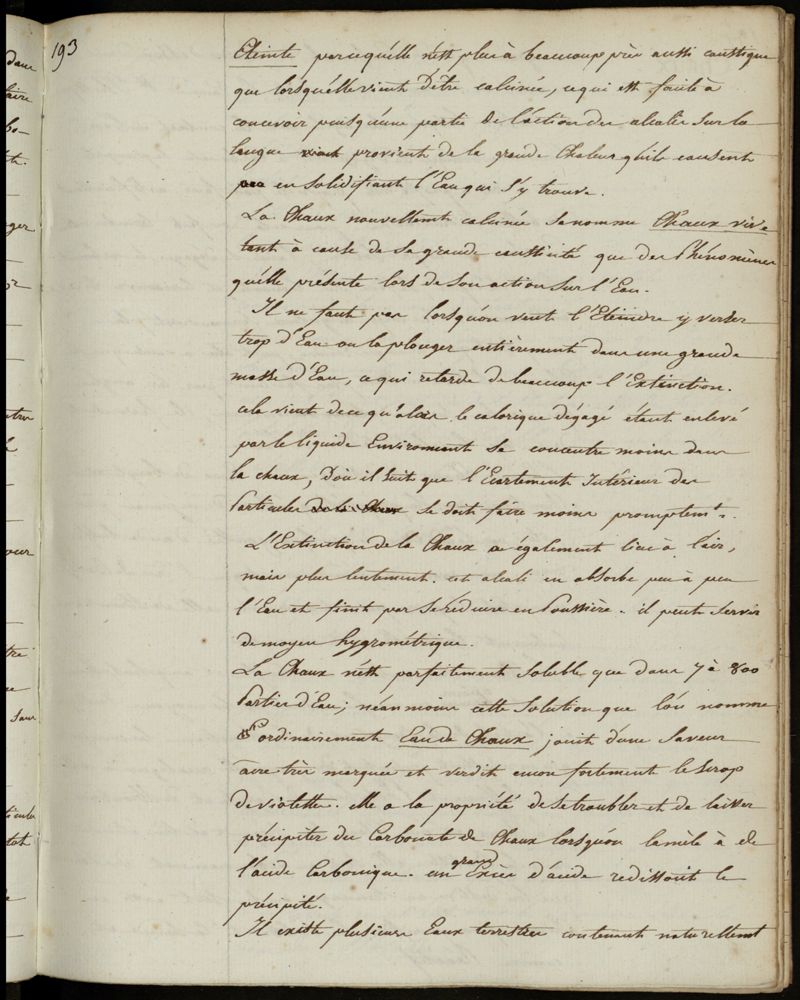 193
Eteinte parcequ'elle n'est plus à beaucoup près aussi caustique
que lorsqu'elle vient d'être calcinée, ce qui est facile à
concevoir puisqu'une partie de l'action des alcalis sur la
langue vient provient de la grande Chaleur qu'ils causent
en solidifiant l'Eau qui s'y trouve.
La Chaux nouvellement calcinée se nomme Chaux vive
tant à cause de sa grande causticité que des Phénomènes
qu'elle présente lors de son action sur l'Eau.
Il ne faut pas lorsqu'on veut l'Eteindre y verser
trop d'Eau ou la plonger entièrement dans une grande
masse d'Eau, ce qui retarde de beaucoup l'Extinction.
cela vient de ce qu'alors le calorique dégagé étant enlevé
par le liquide Environnant se concentre moins dans
la chaux, D'où il suit que l'Ecartement Intérieur des
Particules de la Chaux se doit faire moins promptemt.
L'Extinction de la Chaux a également lieu à l'air,
mais plus lentement. cet alcali en absorbe peu à peu
l'Eau et finit par se réduire en Poussière. il peut servir
de moyen hygrométrique.
La Chaux n'est parfaitement soluble que dans 7 à 800
Parties d'Eau; néanmoins cette Solution que l'on nomme
ordinairement Eau de Chaux jouit d'une Saveur
âcre très marquée et verdit encore fortement le sirop
de violette. elle a la propriété de se troubler et de laisser
précipiter du Carbonate de Chaux lorsqu'on la mêle à de
l'acide Carbonique. un grand Excès d'acide redissout le
précipité.
Il existe plusieurs Eaux terrestres contenant naturellemt